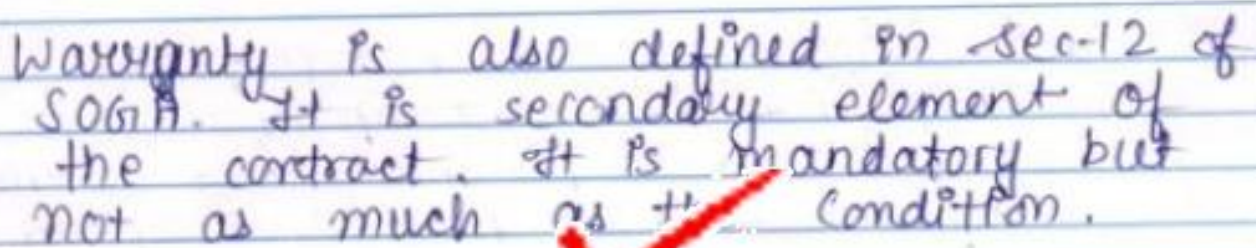 Warranty is also defined in sec-12 of
SOGA. It is secondary element of
the contract. It is mandatory but
not as much as the condition.